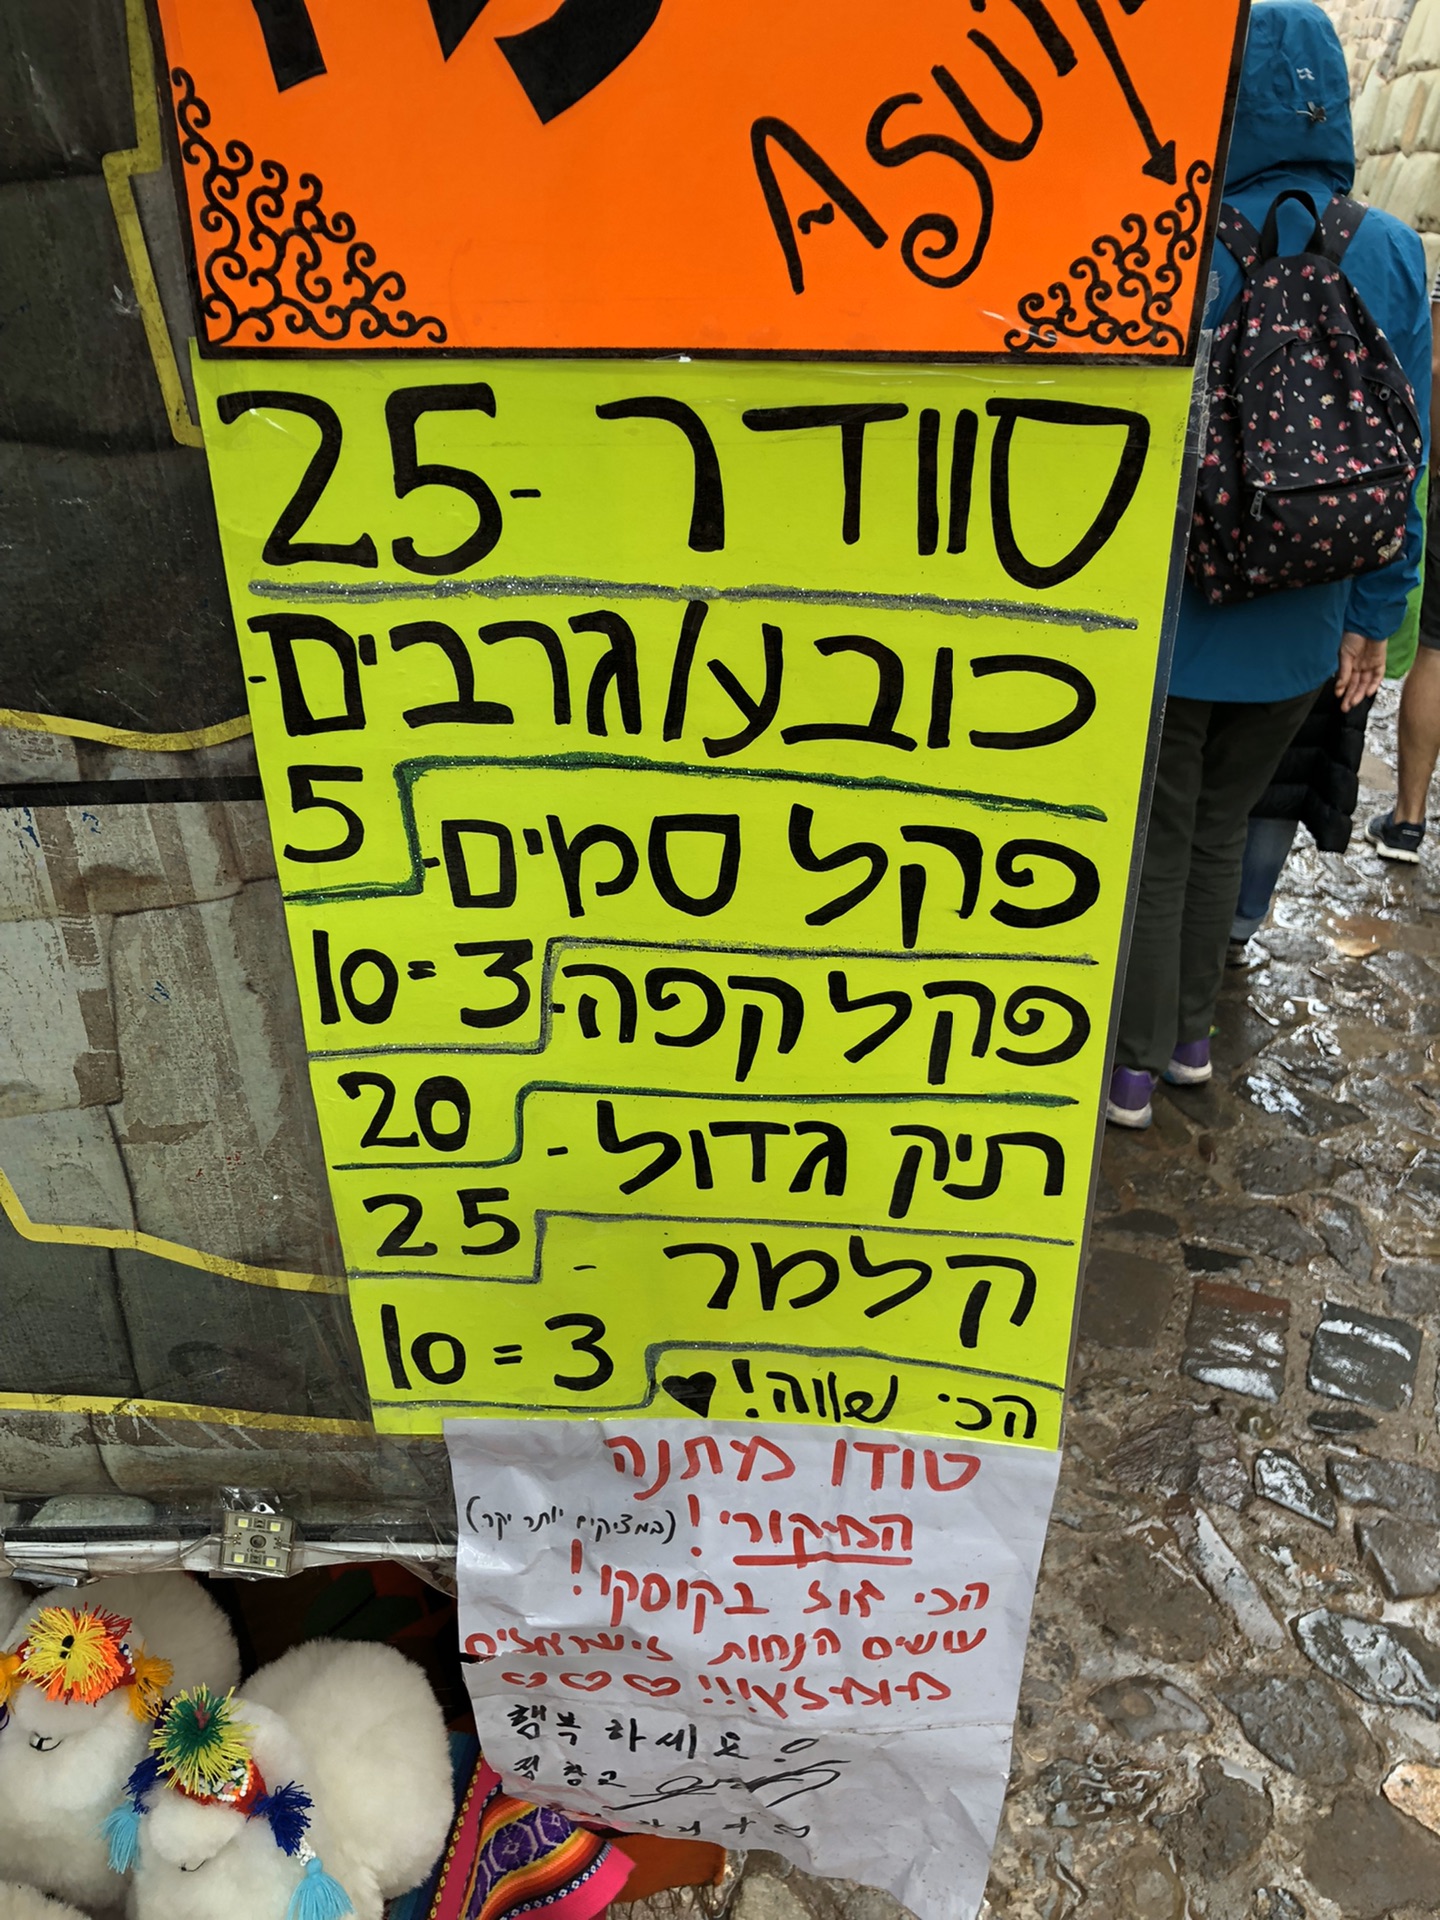 סוודר - 25
כובע/גרבים -
5
פקל סמים -
3 = 10
פקל קפה -
20
תיק גדול -
25
קלמר -
3 = 10
הכי שווה! ♥
טודו מתנה
המקורי! (במציקים יותר יקר)
הכי זול בקוסקו!
עושים הנחות לישראלים
מומלץ!!! ♡♡♡
행복하세요